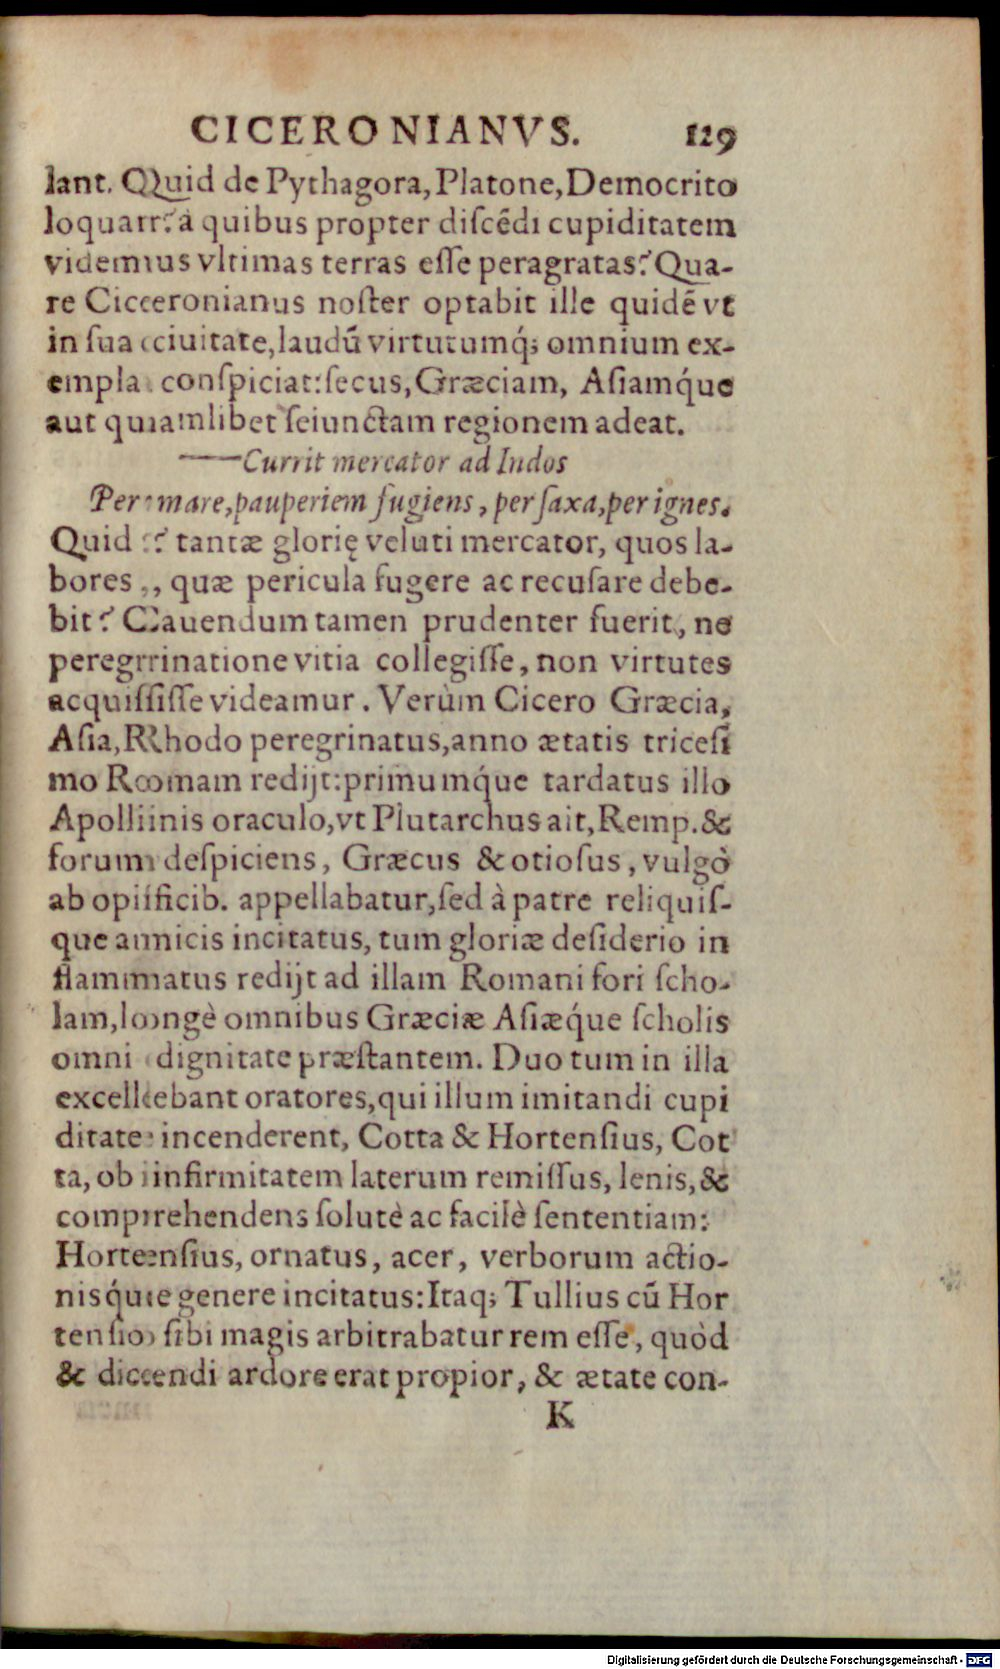 CICERONIANVS. 129
lant. Quid de Pythagora, Platone, Democrito
loquar? à quibus propter discẽdi cupiditatem
videmus vltimas terras esse peragratas? Qua-
re Ciceronianus noster optabit ille quidẽ vt
in sua ciuitate, laudũ virtutumq́; omnium ex-
empla conspiciat: secus, Græciam, Asiamq́ue
aut quamlibet seiunctam regionem adeat.
——Currit mercator ad Indos
Per mare, pauperiem fugiens, per saxa, per ignes.
Quid? tantæ glorię veluti mercator, quos la-
bores, quæ pericula fugere ac recusare debe-
bit? Cauendum tamen prudenter fuerit, ne
peregrinatione vitia collegisse, non virtutes
acquisisse videamur. Verùm Cicero Græcia,
Asia, Rhodo peregrinatus, anno ætatis tricesi
mo Romam redijt: primumq́ue tardatus illo
Apollinis oraculo, vt Plutarchus ait, Remp. &
forum despiciens, Græcus & otiosus, vulgò
ab opificib. appellabatur, sed à patre reliquis-
que amicis incitatus, tum gloriæ desiderio in
flammatus redijt ad illam Romani fori scho-
lam, longè omnibus Græciæ Asiæq́ue scholis
omni dignitate præstantem. Duo tum in illa
excellebant oratores, qui illum imitandi cupi
ditate incenderent, Cotta & Hortensius, Cot
ta, ob infirmitatem laterum remissus, lenis, &
comprehendens solutè ac facilè sententiam:
Hortensius, ornatus, acer, verborum actio-
nisq́ue genere incitatus: Itaq; Tullius cũ Hor
tensio sibi magis arbitrabatur rem esse, quòd
& dicendi ardore erat propior, & ætate con-
K
Digitalisierung gefördert durch die Deutsche Forschungsgemeinschaft - DFG